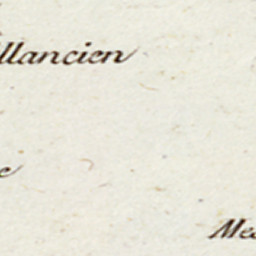 llancien
e
Mea